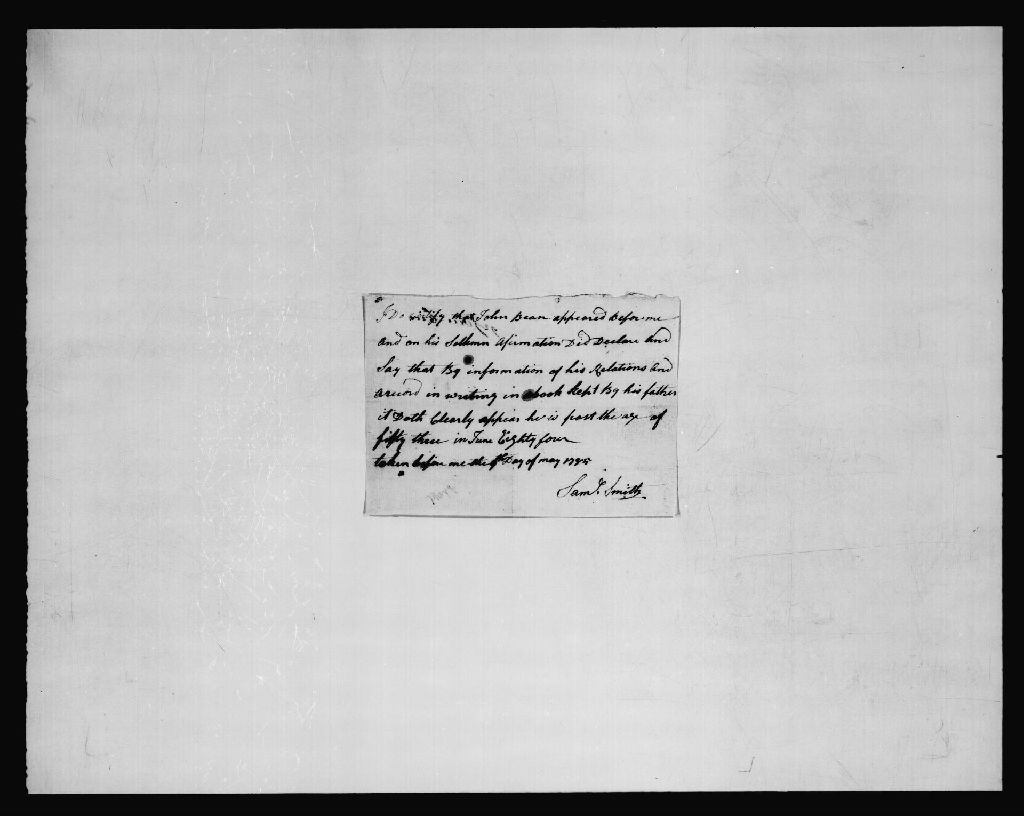 I Do certify that John Bean appeared Before me
and on his Sollemn Afirmation Did Declare And
Say that By information of his Relations And
a record in writing in a book Kept By his father
it Doth Clearly appear he is past the age of
fifty three in June Eighty four
taken before me the Day of may 1785
Saml. Smith